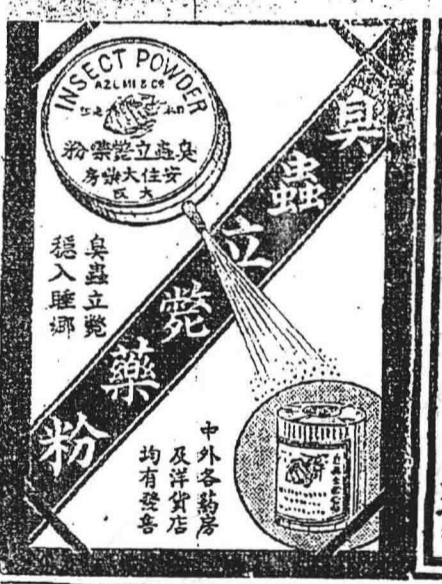 INSECT POWDER
AZUMI & CO
臭蟲立斃藥粉
安住大藥房
臭蟲立斃藥粉
臭蟲立斃
穩入睡鄉
中外各藥房
及洋貨店
均有發售